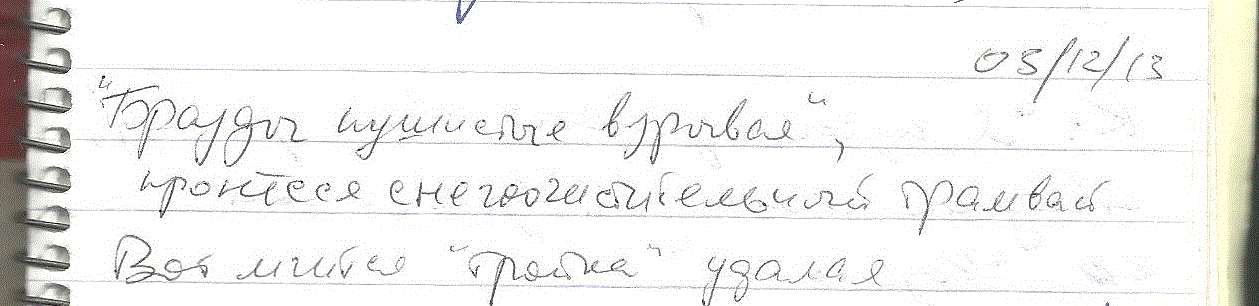 05/12/13
"Бразды пушистые взрывая",
пронёсся снегоочистительный трамвай
Вот мчится "тройка" удалая